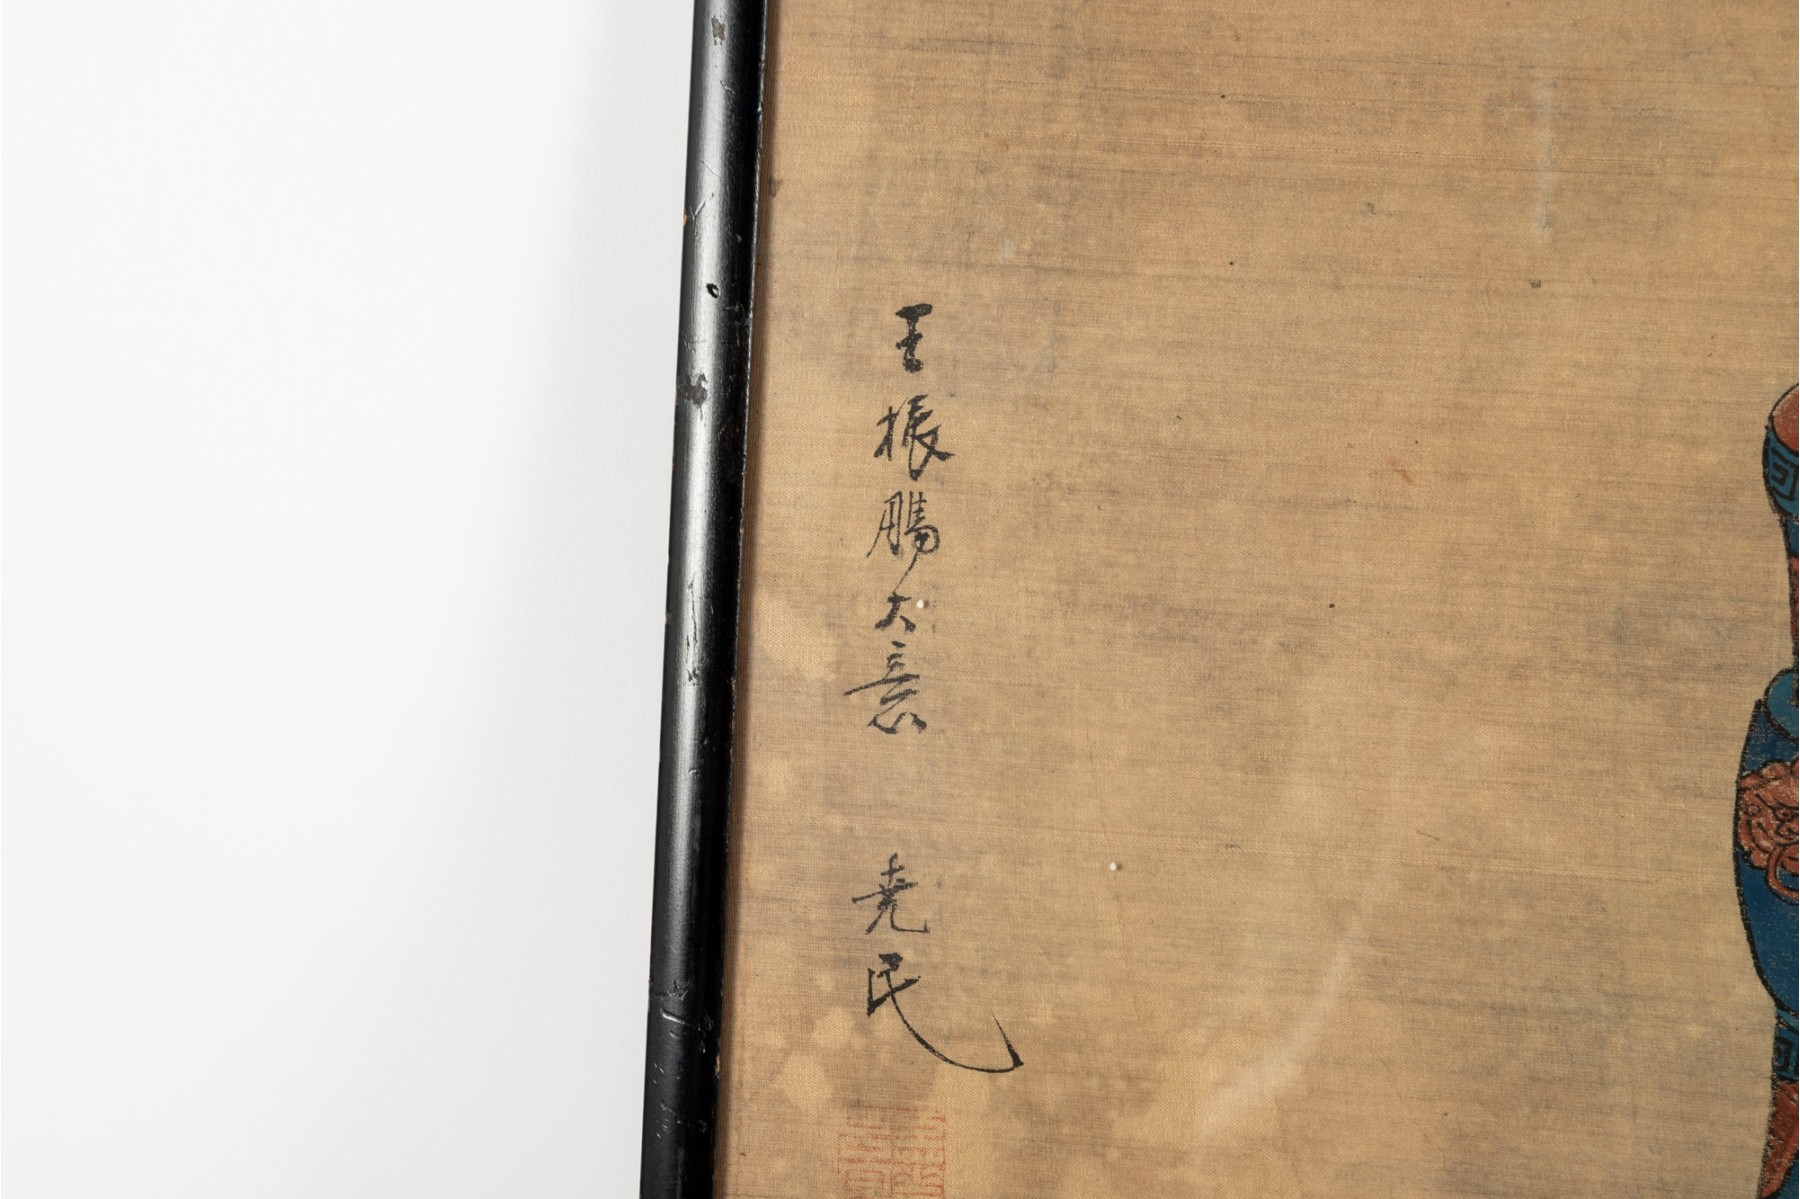 王振鵬大意 尭民